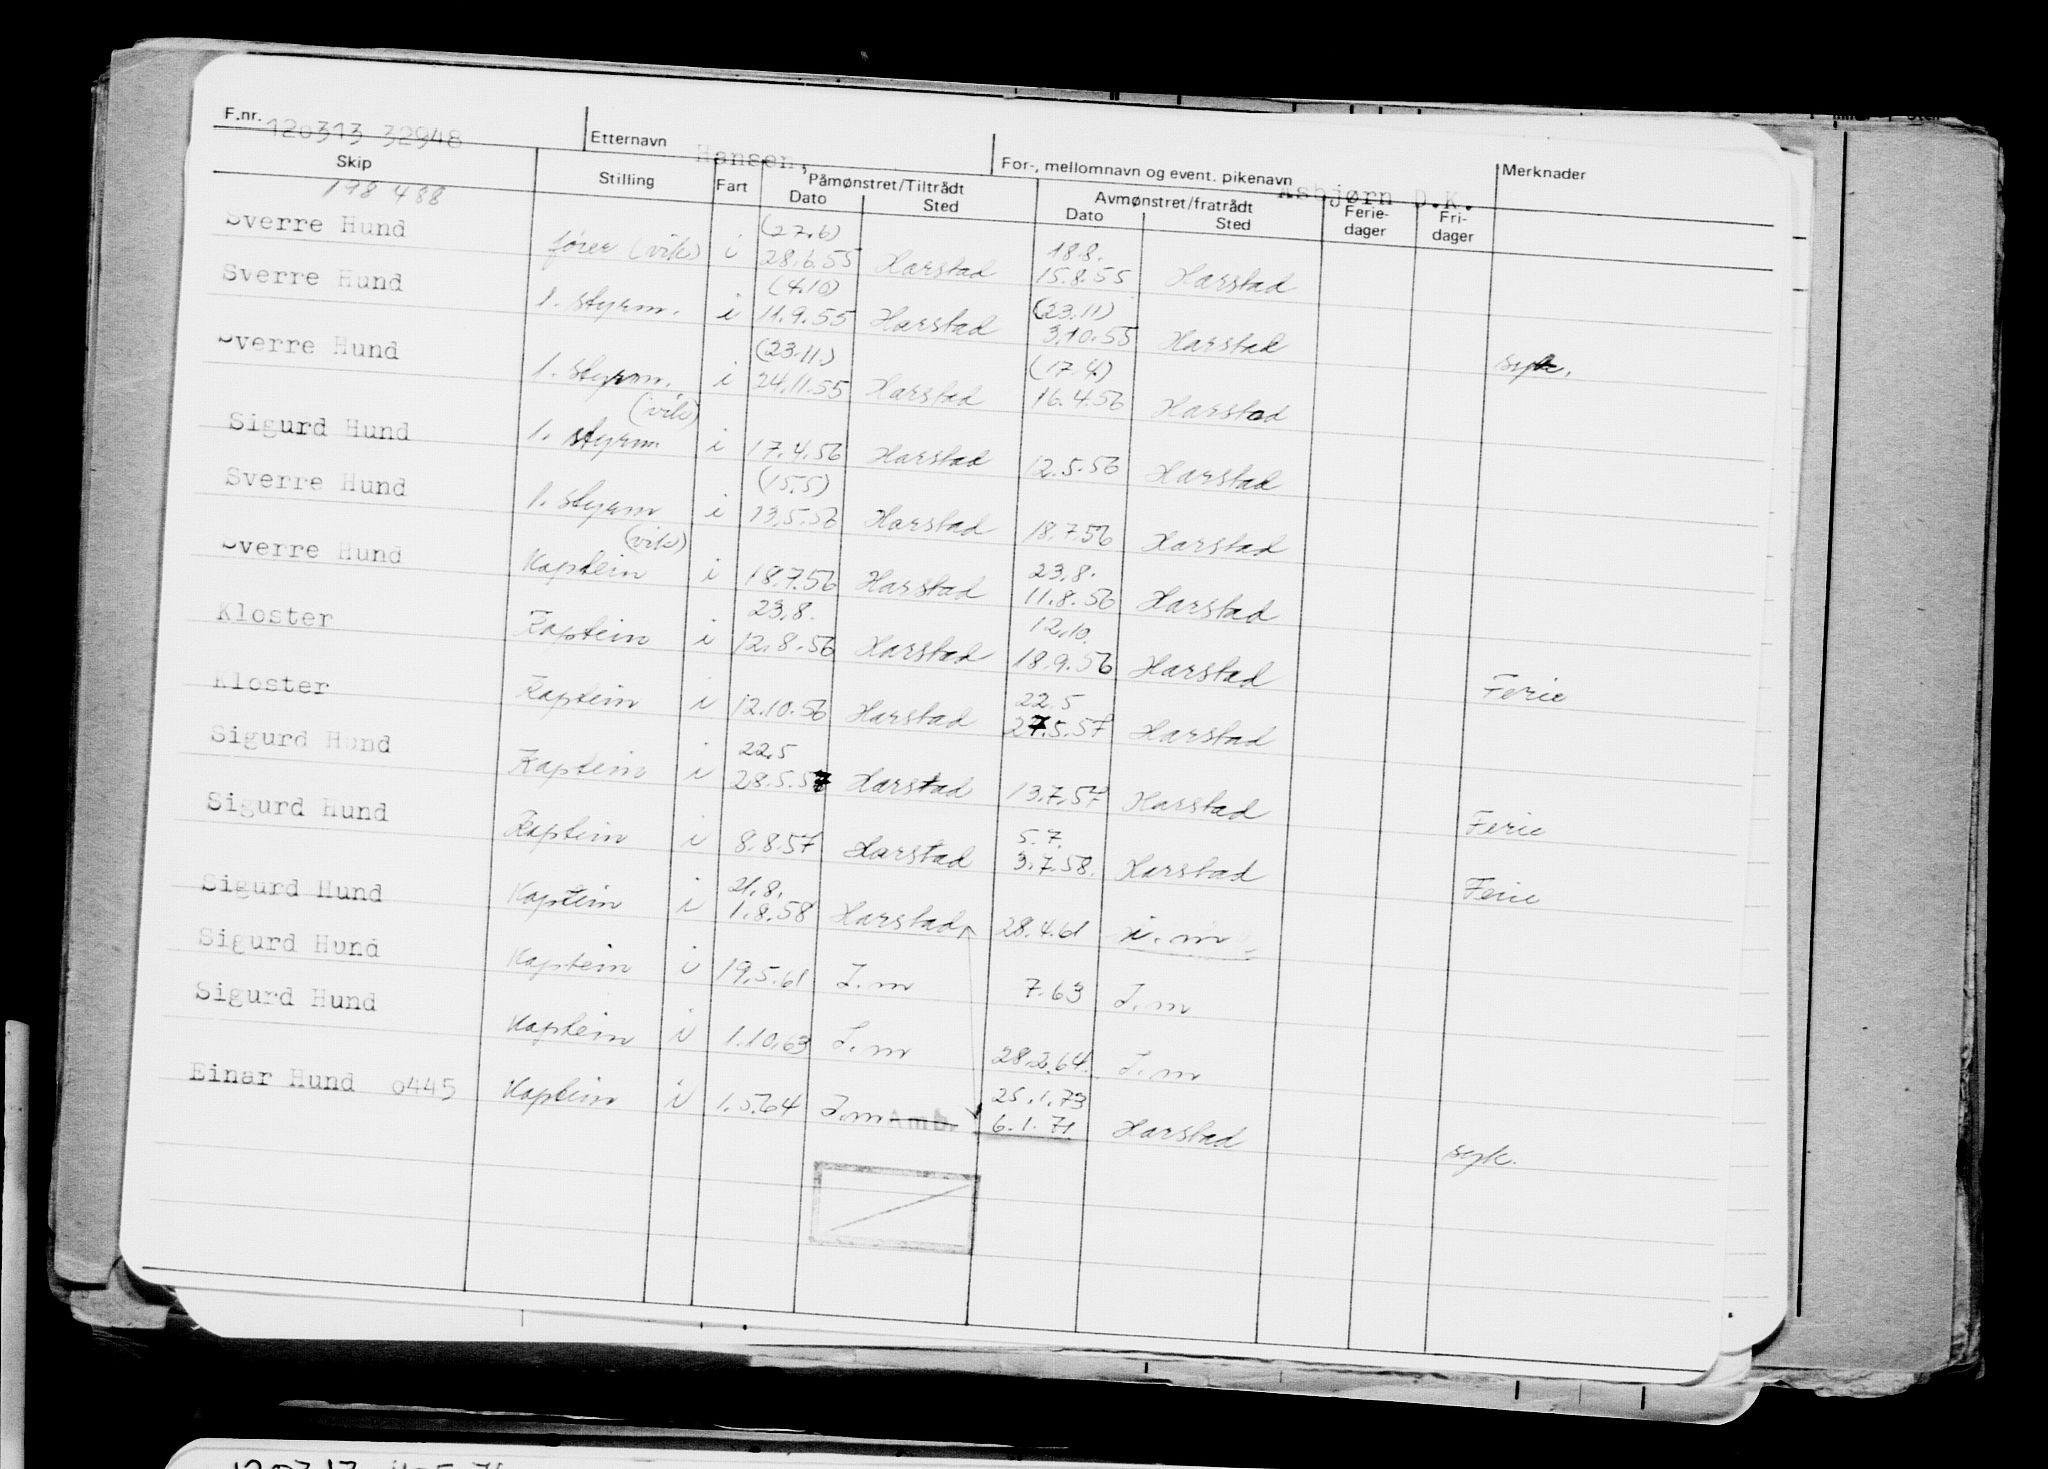 F.nr. 120313 32948 Etternavn Hansen, For-, mellomnavn og event. pikenavn Asbjørn D.K. Merknader
Skip Stilling Fart Påmønstret/Tiltrådt Dato Sted Avmønstret/fratrådt Dato Sted Ferie-dager Fri-dager
198 488
Sverre Hund fører (vik) i (27.6) 28.6.55 Harstad 18.8. 15.8.55 Harstad
Sverre Hund 1. styrm. i (4.10) 11.9.55 Harstad (23.11) 3.10.55 Harstad syk.
Sverre Hund 1. styrm. (vik) i (23.11.) 24.11.55 Harstad (17.4.) 16.4.56 Harstad
Sigurd Hund 1. styrm. i 17.4.56 Harstad 12.5.56 Harstad
Sverre Hund 1. styrm (vik) i (15.5) 13.5.56 Harstad 18.7.56 Harstad
Sverre Hund Kaptein i 18.7.56 Harstad 23.8. 11.8.56 Harstad
Kloster Kaptein i 23.8. 12.8.56 Harstad 12.10. 18.9.56 Harstad Ferie
Kloster Kaptein i 12.10.56 Harstad 22.5 27.5.57 Harstad
Sigurd Hund Kaptein i 22.5 28.5.57 Harstad 13.7.57 Harstad Ferie
Sigurd Hund Kaptein i 8.8.57 Harstad 5.7. 3.7.58. Harstad Ferie
Sigurd Hund Kaptein i 21.8. 1.8.58 Harstad 28.4.61 i.m
Sigurd Hund Kaptein i 19.5.61 I.m 7.63 I.m
Sigurd Hund Kaptein i 1.10.63 I.m 28.2.64. I.m
Einar Hund 0445 Kaptein i 1.5.64 I.m Amb. 25.1.73 6.1.71. Harstad syk.